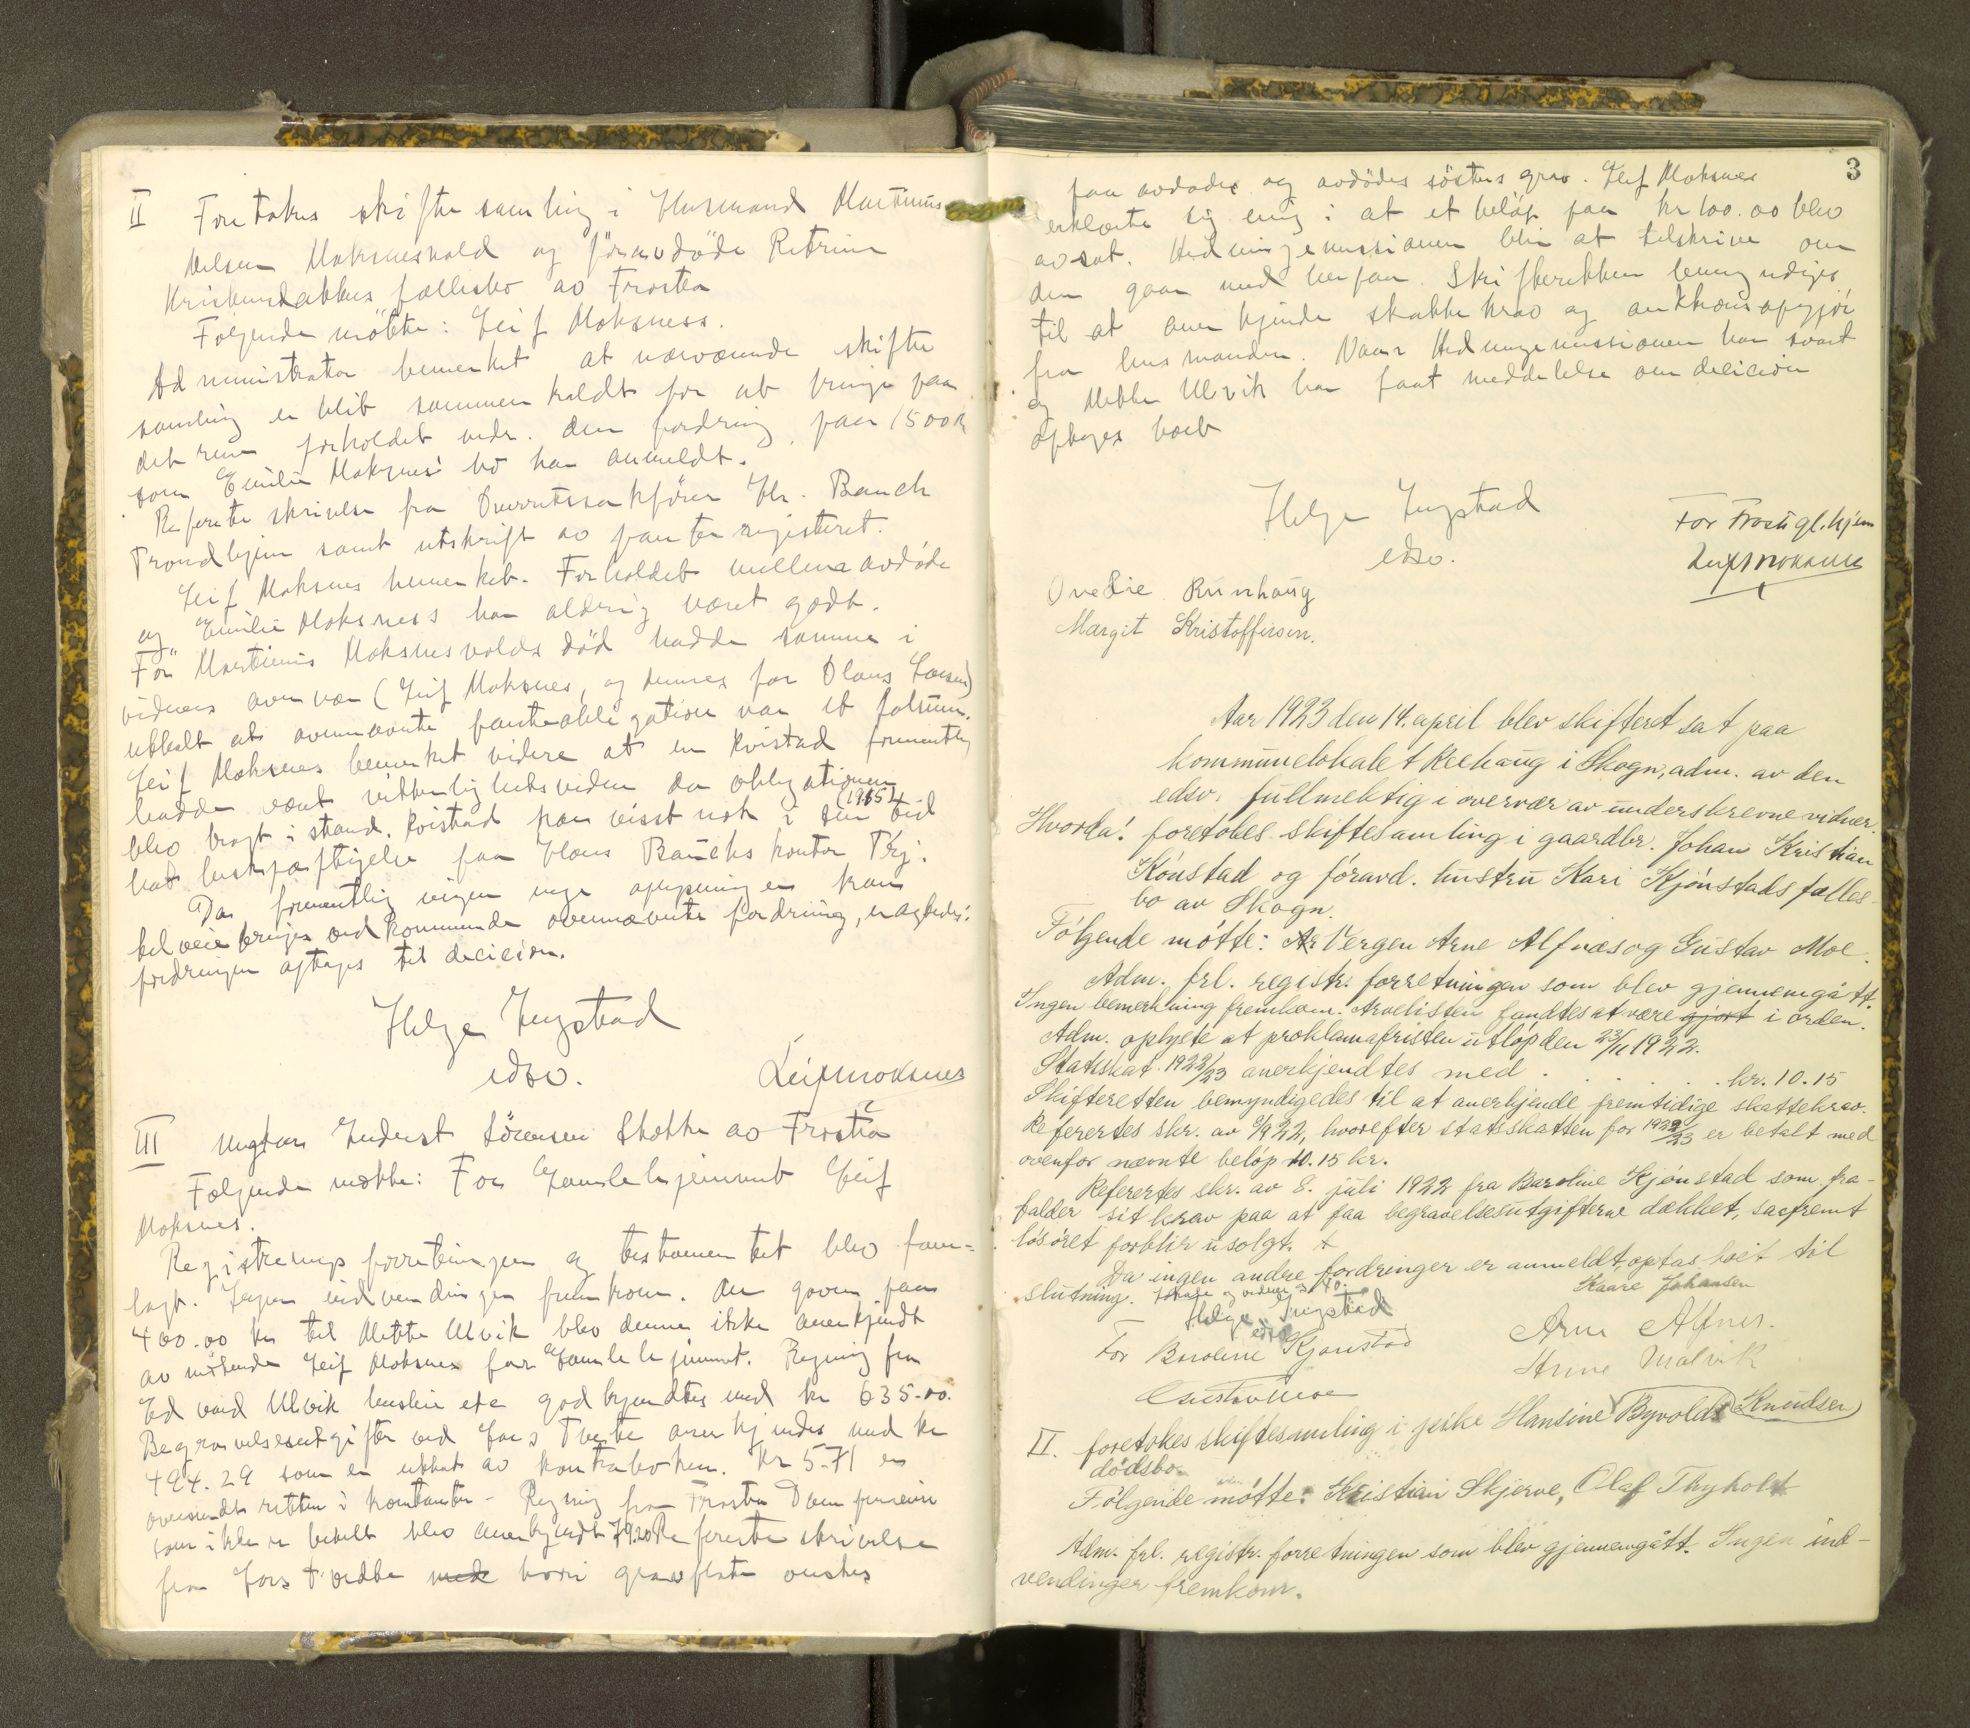 II Foretokes skiftesamling i Husmand Martinus
Nielsen Moksnesvald og føravdøde Petrine
Kristensdatters fællesbo av Frosta
Følgende møtte: Leif Moksness.
Administrator bemerket at nærværende skifte
samling er blit sammenkaldt for at bringe paa
det rene forholdet vedr. den fordring paa 1500 kr
som Emilie Moksnes' bo har anmeldt.
Referertes skrivelse fra Overretssakfører Hr. Bauck
Trondhjem samt utskrift av panteregisteret.
Leif Moksnes bemerket. Forholdet mellem avdøde
og Emilie Moksness har aldrig været godt.
Før Martinus Moksnesvolds død hadde samme i
vidners overvær (Leif Moksnes, og dennes far Olaus Larsen)
uttalt at ovennævnte panteobligation var et falsum.
Leif Moksnes bemerket videre at en Kvistad formentlig
hadde været vitterlighetsvidne da obligationen
blev bragt i stand. Kvistad har visst nok i sin tid (1915)
hat beskjæftigelse paa Hans Baucks kontor Trhj.
Da formentlig ingen nye oplysninger kan
tilveiebringes vedkommende ovennævnte fordring,
fordringen optages til decision.
Helge Ingstad
edsv.
Leif Moksnes
III Ungkar Inderst Sørensen Skatte av Frosta
Følgende møtte: For Gamlehjemmet Leif
Moksnes.
Registreringsforretningen og testamentet blev fram=
lagt. Ingen indvendinger fremkom. Den gaven paa
400.00 kr til Mette Ulvik blev denne ikke anerkjendt
av møtende Leif Moksnes for Gamlehjemmet. Regning fra
Edvard Ulvik husleie etc godkjendtes med kr 635.00.
Begravelsesutgifter ved Lars Tvete anerkjendes med kr
494.29 som er uttat av kontraboken. Kr 5.71 er
oversendt retten i kontanter. Regning fra Frosta Dampmeieri
som ikke er betalt blev anerkjendt 79.20 Referertes skrivelse
fra Lars Tvedte med hvori gravstøtte ønskes
3
paa avdødes og avdødes søsters grav. Leif Moksnes
erklærte sig enig i at et beløp paa kr 100.00 blev
avsat. Hedningemissionen blir at tilskrive om
den gaar med herpaa. Skifteretten bemyndiges
til at anerkjende skattekrav og ankomsopgjør
fra lensmanden. Naar Hedningemissionen har svart
og Mette Ulvik har faat meddelelse om decision
optages boet
Helge Ingstad
edsv.
For Frosta gl.hjem
Leif Moksnes
Ovedie Runhaug
Margit Kristoffersen.
Aar 1923 den 14. april blev skifteret sat paa
kommunelokalet Reehaug i Skogn, adm. av den
edsv. fullmektig i overvær av underskrevne vidner.
Hvorda! foretokes skiftesamling i gaardbr. Johan Kristian
Könstad og føravd. hustru Kari Kjønstads fælles-
bo av Skogn.
Følgende møtte: Vergen Arne Alfnæs og Gustav Moe.
Adm. frl. registr. forretningen som blev gjennemgått.
Ingen bemerkning fremkom. Arvelisten fandtes at være gjort i orden.
Adm. oplyste at proklamafristen utløp den 23/11 1922.
Statsskat 1922/23 anerkjendtes med . . . . . kr. 10.15
Skifteretten bemyndigedes til at anerkjende fremtidige skattekrav.
Referertes skr. av 9/9 22, hvorefter statsskatten for 1922/23 er betalt med
ovenfor nævnte beløp 10.15 kr.
Referertes skr. av 8. juli 1922 fra Baroline Kjønstad som fra-
falder sit krav paa at faa begravelsesutgifterne dækket, saafremt
løsøret forblir usolgt.
Da ingen andre fordringer er anmeldt, optas boet til
slutning.
Kaare Johansen
Helge Ingstad
edsv
For Baroline Kjønstad
Arne Alfnes.
Arne Malvik
Gustav Moe
II. foretokes skiftesamling i pike Hansine Byvolds (Knudsen)
dødsbo.
Følgende møtte: Kristian Skjerve, Olaf Thyholt
Adm. frl. registr. forretningen som blev gjennemgått. Ingen ind-
vendinger fremkom.